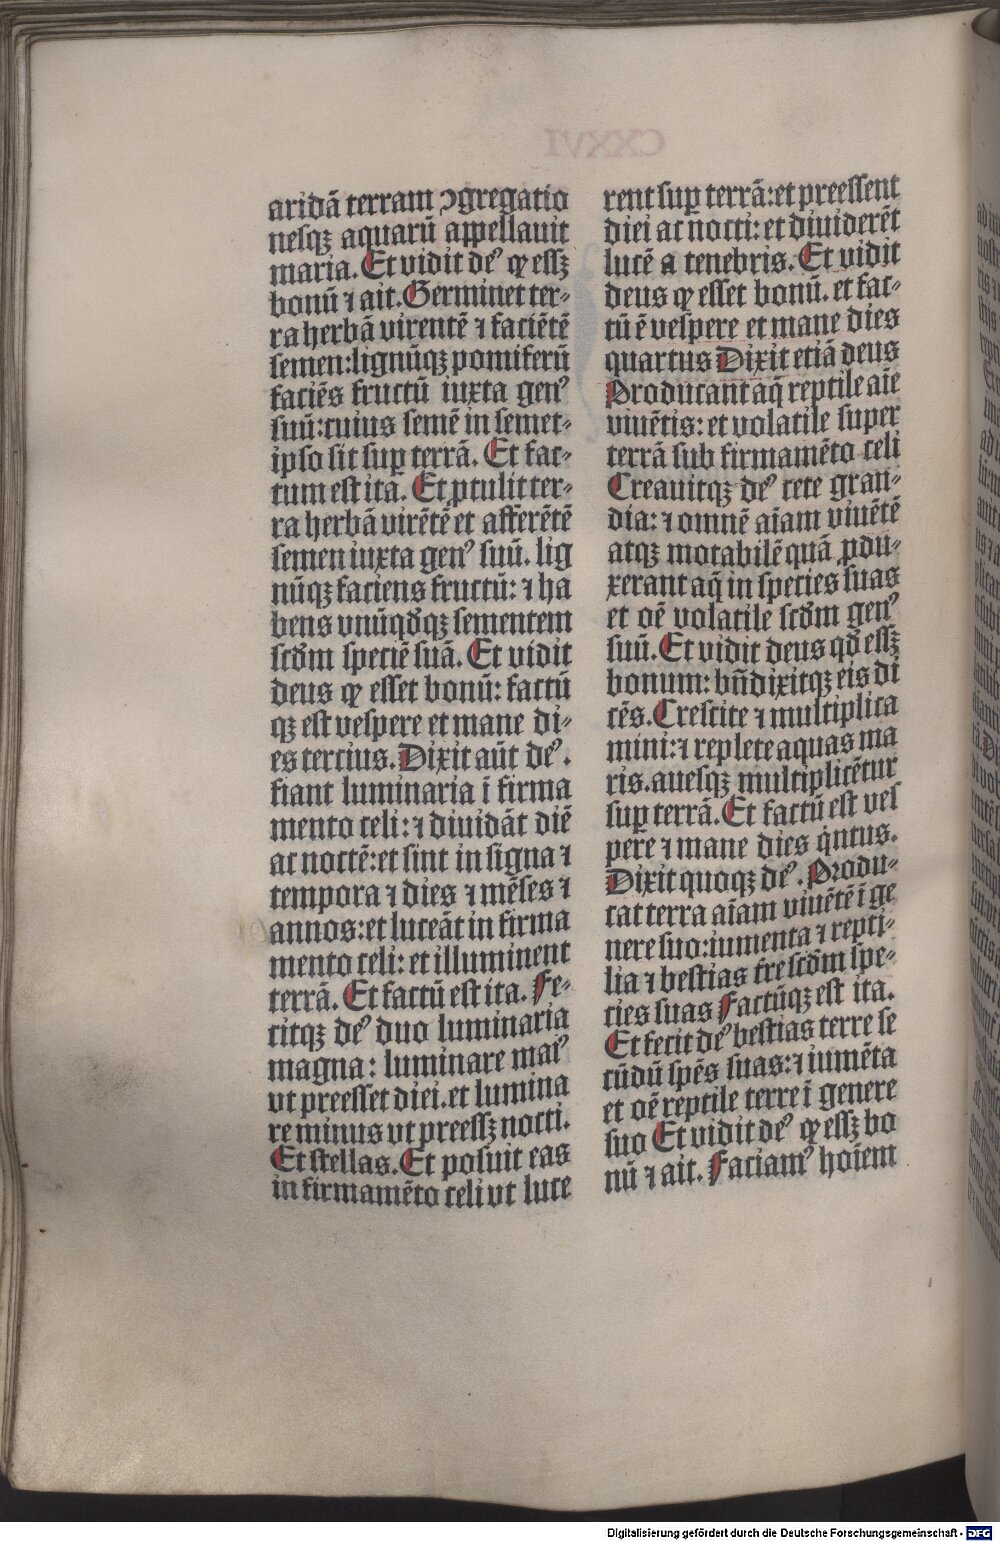 CXXVI
aridā terram ↄgregatio
nesqꝫ aquarū appellauit
maria. Et vidit deꝰ ꝙ essꝫ
bonū ⁊ ait. Germinet ter⸗
ra herbā virentē ⁊ faciētē
semen: lignūqꝫ pomiferū
faciēs fructū iuxta genꝰ
suū: cuius semē in semet⸗
ipso sit suꝑ terrā. Et fac⸗
tum est ita. Et ꝓtulit ter⸗
ra herbā virētē et afferētē
semen iuxta genꝰ suū. lig
nūqꝫ faciens fructū: ⁊ ha
bens vnūqd̄qꝫ sementem
scd̄m speciē suā. Et vidit
deus ꝙ esset bonū: factū
qꝫ est vespere et mane di⸗
es tercius. Dixit aūt deꝰ.
fiant luminaria ī firma
mento celi: ⁊ diuidāt diē
ac noctē: et sint in signa ⁊
tempora ⁊ dies ⁊ mēses ⁊
annos: et luceāt in firma
mento celi: et illuminent
terrā. Et factū est ita. Fe⸗
citqꝫ deꝰ duo luminaria
magna: luminare maiꝰ
vt preesset diei. et lumina
re minus vt preessꝫ nocti.
Et stellas. Et posuit eas
in firmamēto celi vt luce
rent suꝑ terrā: et preessent
diei ac nocti: et diuiderēt
lucē a tenebris. Et vidit
deus ꝙ esset bonū. et fac⸗
tū ē vespere et mane dies
quartus Dixit etiā deus
Producant aq̄ reptile aīe
viuētis: et volatile super
terrā sub firmamēto celi
Creauitqꝫ deꝰ cete gran⸗
dia: ⁊ omnē aīam viuētē
atqꝫ motabilē quā ꝓdu⸗
xerant aq̄ in species suas
et oē volatile scd̄m genꝰ
suū. Et vidit deus qd̄ essꝫ
bonum: bn̄dixitqꝫ eis di
cēs. Crescite ⁊ multiplica
mini: ⁊ replete aquas ma
ris. auesqꝫ multiplicētur
suꝑ terrā. Et factū est ves
pere ⁊ mane dies qͥntus.
Dixit quoqꝫ deꝰ. Produ⸗
cat terra aīam viuētē ī ge
nere suo: iumenta ⁊ repti⸗
lia ⁊ bestias t̄re scd̄m spe⸗
cies suas Factūqꝫ est ita.
Et fecit deꝰ bestias terre se
cūdū spēs suas: ⁊ iumēta
et oē reptile terre ī genere
suo Et vidit deꝰ ꝙ essꝫ bo
nū ⁊ ait. Faciamꝰ hoīem
Digitalisierung gefördert durch die Deutsche Forschungsgemeinschaft - DFG